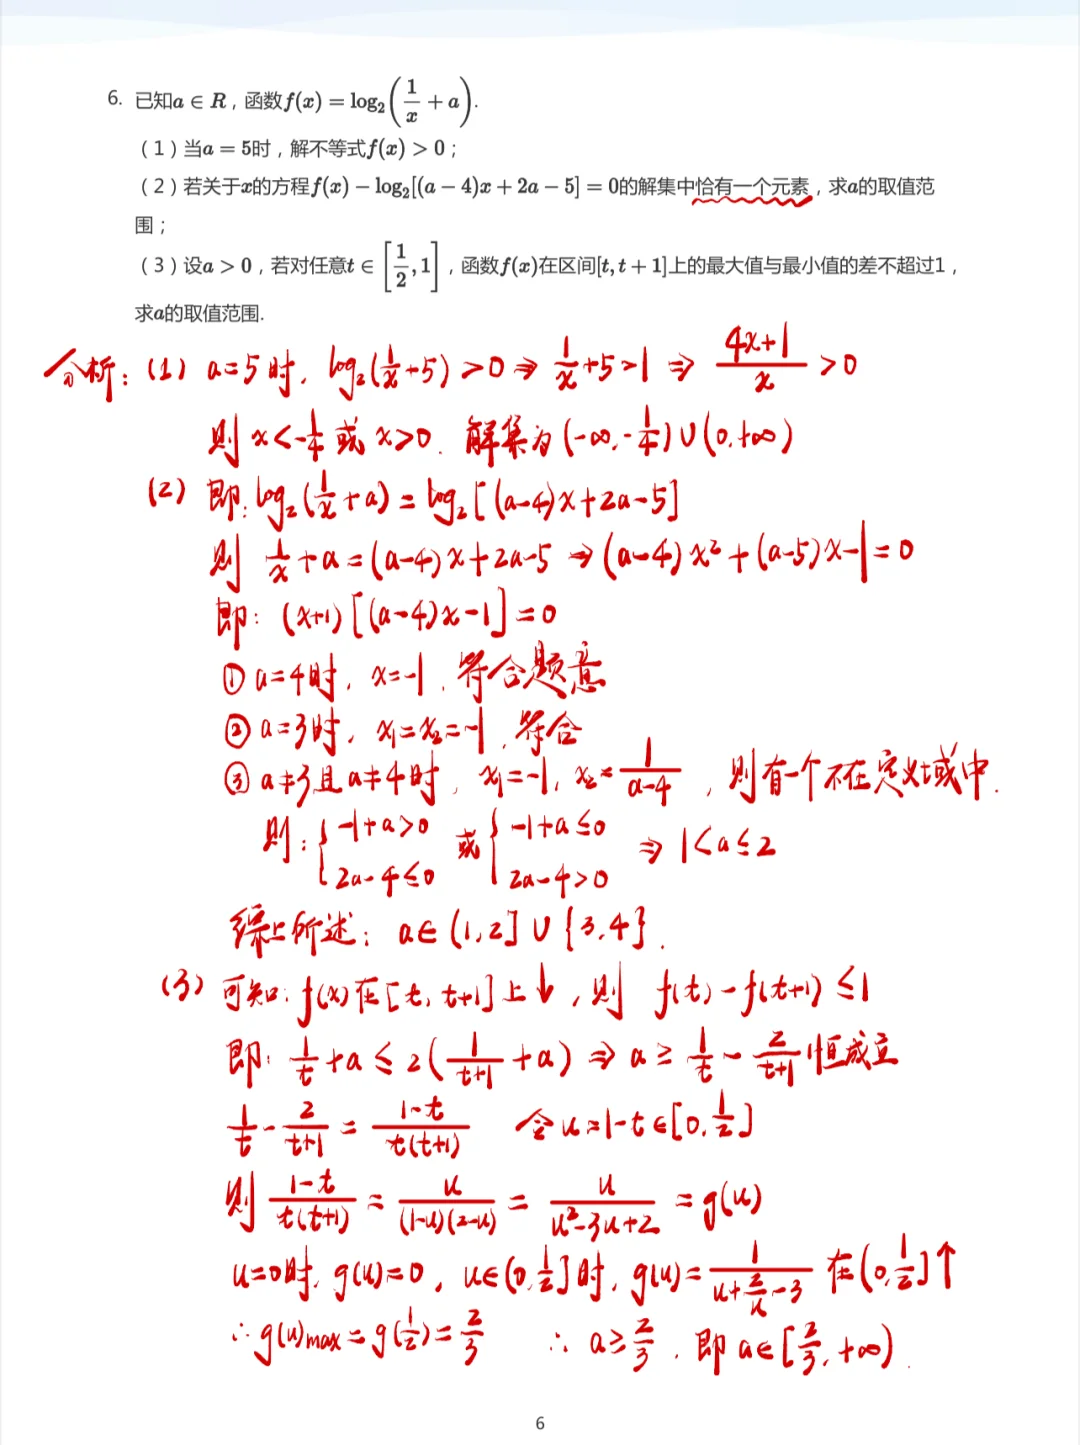 6. 已知a ∈ R，函数f(x) = log₂(1/x + a).
（1）当a = 5时，解不等式f(x) > 0；
（2）若关于x的方程f(x) − log₂[(a − 4)x + 2a − 5] = 0的解集中恰有一个元素，求a的取值范
围；
（3）设a > 0，若对任意t ∈ [1/2, 1]，函数f(x)在区间[t, t + 1]上的最大值与最小值的差不超过1，
求a的取值范围.
分析：(1) a=5时，log₂(1/x+5)>0 ⇒ 1/x+5>1 ⇒ (4x+1)/x >0
则 x<-1/4 或 x>0. 解集为(-∞,-1/4)∪(0,+∞)
(2) 即：log₂(1/x+a)=log₂[(a-4)x+2a-5]
则 1/x+a=(a-4)x+2a-5 ⇒ (a-4)x²+(a-5)x-1=0
即：(x+1)[(a-4)x-1]=0
① a=4时，x=-1，符合题意
② a=3时，x₁=x₂=-1，符合
③ a≠3且a≠4时，x₁=-1，x₂=1/(a-4)，则有一个不在定义域中.
则：{-1+a>0 2a-4≤0 或 {-1+a≤0 2a-4>0 ⇒ 1<a≤2
综上所述：a∈(1,2]∪{3,4}.
(3) 可知：f(x)在[t,t+1]上↓，则 f(t)-f(t+1)≤1
即：1/t+a≤2(1/(t+1)+a) ⇒ a≥1/t-2/(t+1)恒成立
1/t-2/(t+1)=(1-t)/(t(t+1)) 令u=1-t∈[0,1/2]
则 (1-t)/(t(t+1))=u/((1-u)(2-u))=u/(u²-3u+2)=g(u)
u=0时，g(u)=0，u∈(0,1/2]时，g(u)=1/(u+2/u-3) 在(0,1/2]↑
∴g(u)max=g(1/2)=2/3 ∴a≥2/3，即a∈[2/3,+∞).
6